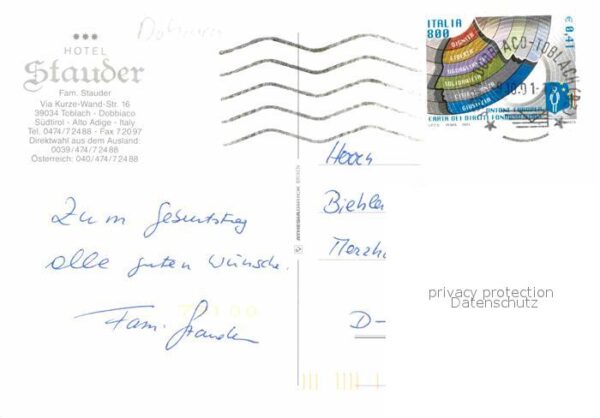 Dobbiaco
★★★
HOTEL
Stauder
Fam. Stauder
Via Kurze-Wand-Str. 16
39034 Toblach - Dobbiaco
Südtirol - Alto Adige - Italy
Tel. 0474/72488 - Fax 72097
Direktwahl aus dem Ausland:
0039/474/72488
Österreich: 040/474/72488
Zum Geburtstag
alle guten Wünsche.
Fam. Stauder
ITALIA
800
€ 0,41
DIGNITÀ
LIBERTÀ
UGUAGLIANZA
SOLIDARIETÀ
CITTADINANZA
GIUSTIZIA
UNIONE EUROPEA
CARTA DEI DIRITTI FONDAMENTALI
ACO-TOBLACH
Biehle
Merzha
D-
privacy protection
Datenschutz